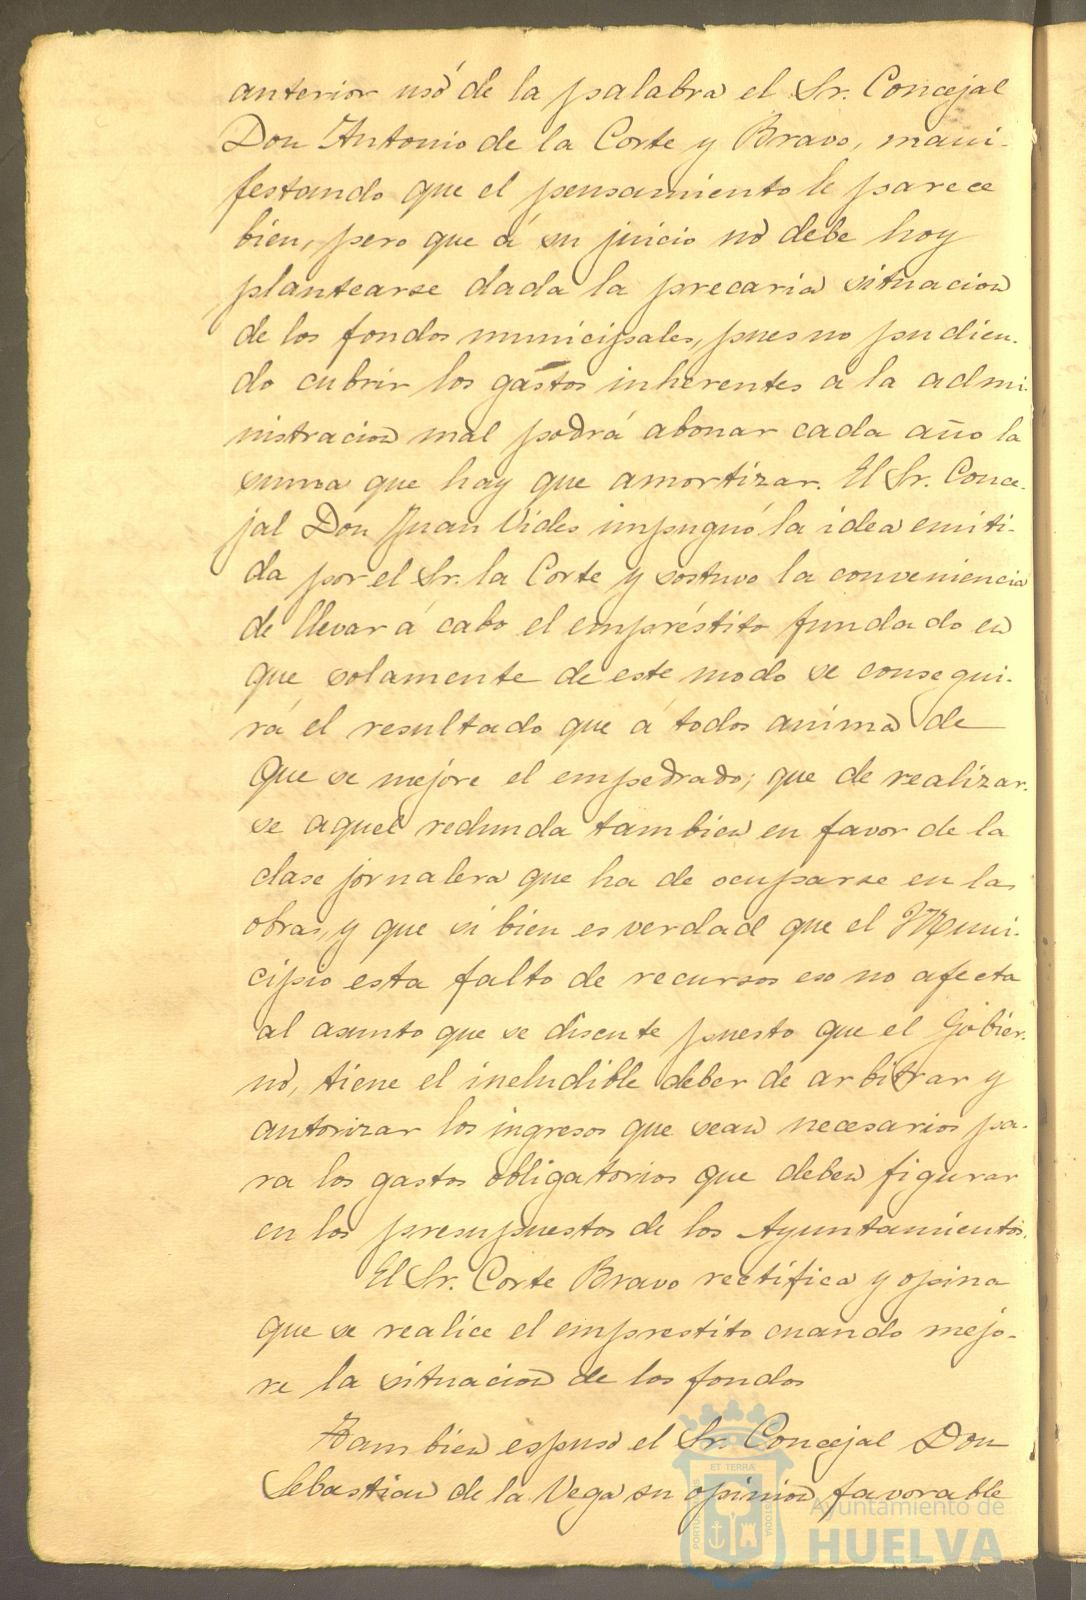 anterior usó de la palabra el Sr. Concejal
Don Antonio de la Corte y Bravo, mani-
festando que el pensamiento le parece
bien, pero que á su juicio no debe hoy
plantearse dada la precaria situacion
de los fondos municipales, pues no pudien-
do cubrir los gastos inherentes a la admi-
nistracion mal podrá abonar cada año la
suma que hay que amortizar. El Sr. Conce-
jal Don Juan Vides impugnó la idea emiti-
da por el Sr. la Corte y sostuvo la conveniencia
de llevar á cabo el empréstito fundado en
que solamente de este modo se consegui-
rá el resultado que á todos anima de
que se mejore el empedrado; que de realizar-
se aquel redunda tambien en favor de la
clase jornalera que ha de ocuparse en las
obras, y que si bien es verdad que el Muni-
cipio esta falto de recursos eso no afecta
al asunto que se discute puesto que el Gobier-
no, tiene el ineludible deber de arbitrar y
autorizar los ingresos que sean necesarios pa-
ra los gastos obligatorios que deben figurar
en los presupuestos de los Ayuntamientos.
El Sr. Corte Bravo rectifica y opina
que se realice el emprestito cuando mejo-
re la situacion de los fondos
Tambien espuso el Sr. Concejal Don
Sebastian de la Vega su opinion favorable
ET TERRÆ
PORTUS MARIS
CUSTODIA
Ayuntamiento de
HUELVA